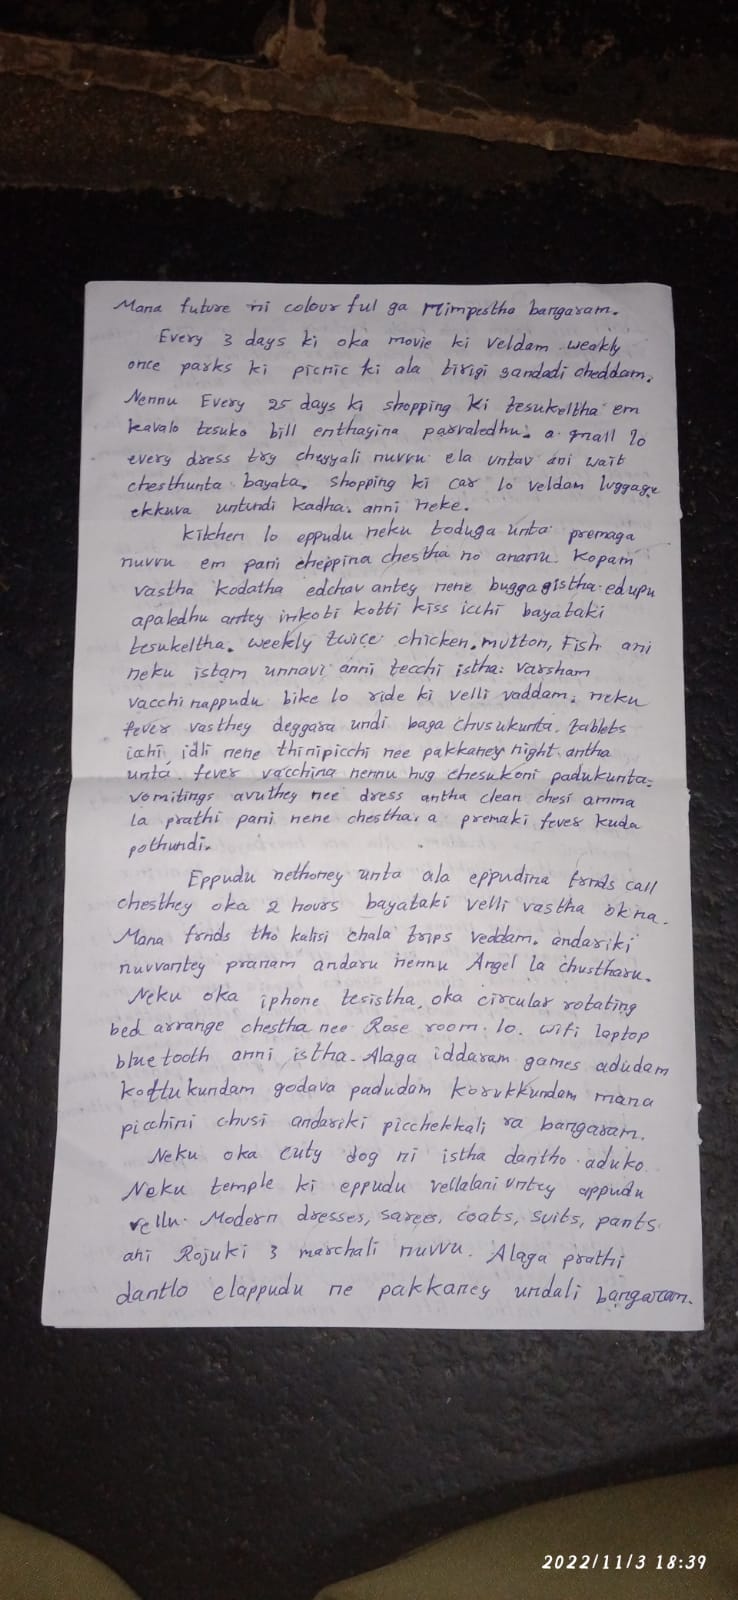 Mana future ni colour ful ga nimpestha bangaram.
Every 3 days ki oka movie ki veldam weakly
once parks ki picnic ki ala tirigi sandadi cheddam.
Nennu Every 25 days ki shopping ki tesukeltha em
kavalo tesuko bill enthayina parvaledhu. a mall lo
every dress try cheyyali nuvvu ela untav ani wait
chesthunta bayata. shopping ki car lo veldam luggage
ekkuva untundi kadha. anni neke.
Kitchen lo eppudu neku toduga unta premaga
nuvvu em pani cheppina chestha no ananu. Kopam
vastha kodatha edchav antey nene buggagistha. edupu
apaledhu antey inkoti kotti kiss icchi bayataki
tesukeltha. weekly twice chicken, mutton, Fish ani
neku istam unnavi anni tecchi istha. Varsham
vacchinappudu bike lo ride ki velli vaddam. neku
fever vasthey deggara undi baga chusukunta. tablets
icchi idli nene thinipicchi nee pakkaney night antha
unta. fever vacchina nennu hug chesukoni padukunta.
vomitings avuthey nee dress antha clean chesi amma
la prathi pani nene chestha. a premaki fever kuda
pothundi.
Eppudu nethoney unta ala eppudina frnds call
chesthey oka 2 hours bayataki velli vastha okna.
Mana frnds tho kalisi chala trips veddam. andariki
nuvvantey pranam andaru nennu Angel la chustharu.
Neku oka iphone tesistha. oka circular rotating
bed arrange chestha nee Rose room lo. wifi laptop
bluetooth anni istha. Alaga iddaram games adudam
kottukundam godava padudam korukkundam mana
picchini chusi andariki picchekkali ra bangaram.
Neku oka cuty dog ni istha dantho aduko.
Neku temple ki eppudu vellalani untey appudu
vellu. Modern dresses, sarees, coats, suits, pants
ani Rojuki 3 marchali nuvvu. Alaga prathi
dantlo elappudu ne pakkaney undali bangaram.
2022/11/3 18:39